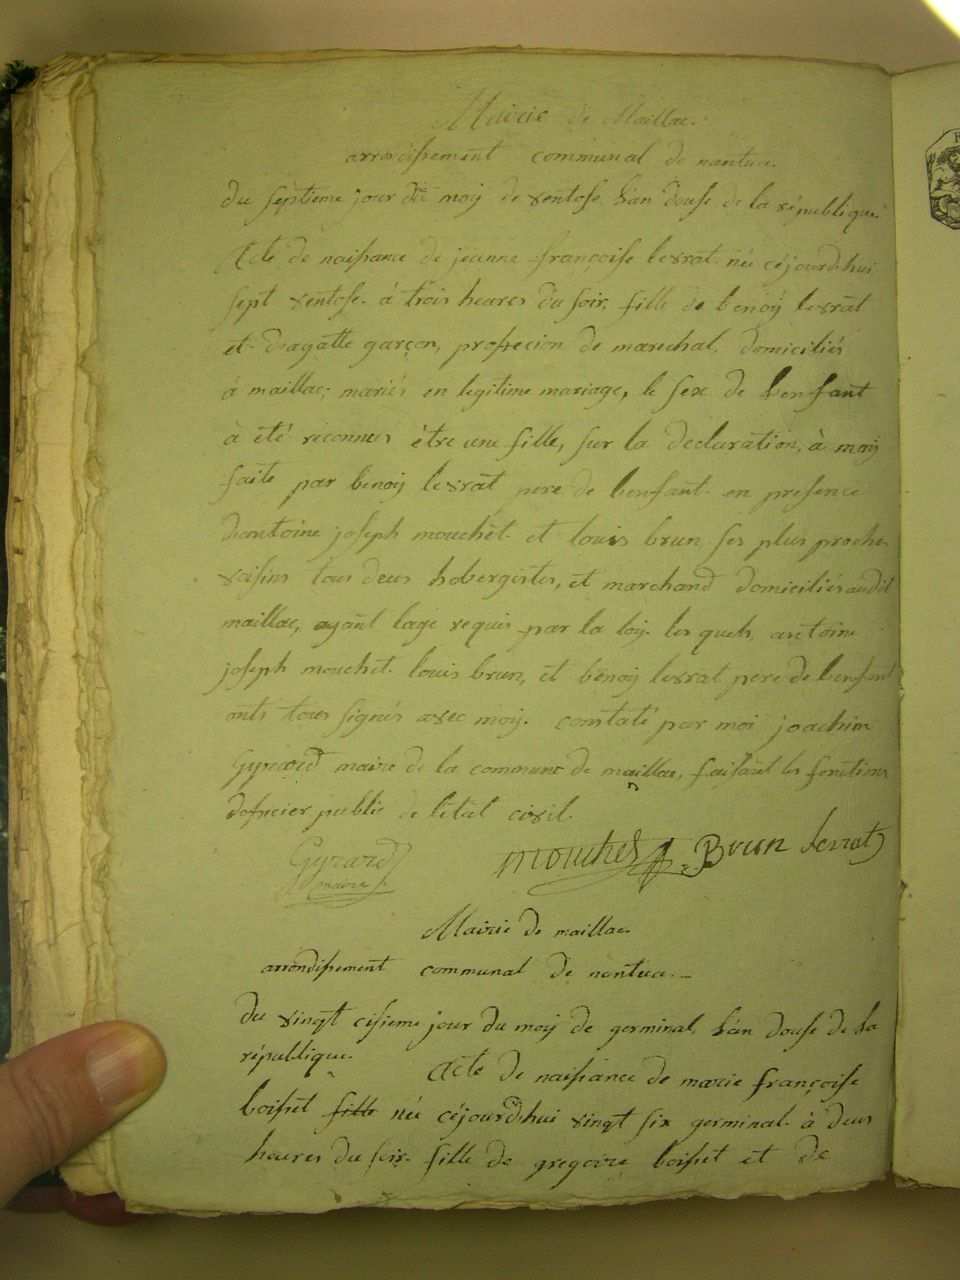 Mairie de Maillac.
arrondissement communal de nantua.
du septieme jour du moy de ventose l'an douse de la république.
Acte de naissance de jeanne françoise levrat née céjourd'hui
sept ventose. à trois heures du soir, fille de benoÿ levrat
et d'agatte garçon, profession de marechal, domiciliés
à maillac; mariés en legitime mariage, le sex de lenfant
à été reconnus être une fille, sur la declaration, à moy
faite par benoÿ levrat pere de lenfant. en presence
dantoine joseph mouchêt. et louis brun ses plus proches
voisins tous deux hobergistes, et marchand domiciliés audit
maillac, ayant lage requis par la loy. lesquels antoine
joseph mouchet. louis brun, et benoÿ levrat pere de lenfant
onts tous signés avec moy. constaté par moi joachim
Gyrard maire de la commune de maillac, faisant les fonctions
dofficier public de létat civil.
Gyrard mouchet Brun Levrat
maire
Mairie de maillac.
arrondissement communal de nantua.
du vingt cisieme jour du moy de germinal, l'an douse de la
république.
Acte de naissance de marie françoise
boisset fille née céjourd'hui vingt six germinal. à deux
heures du soir. fille de gregoire boisset et de